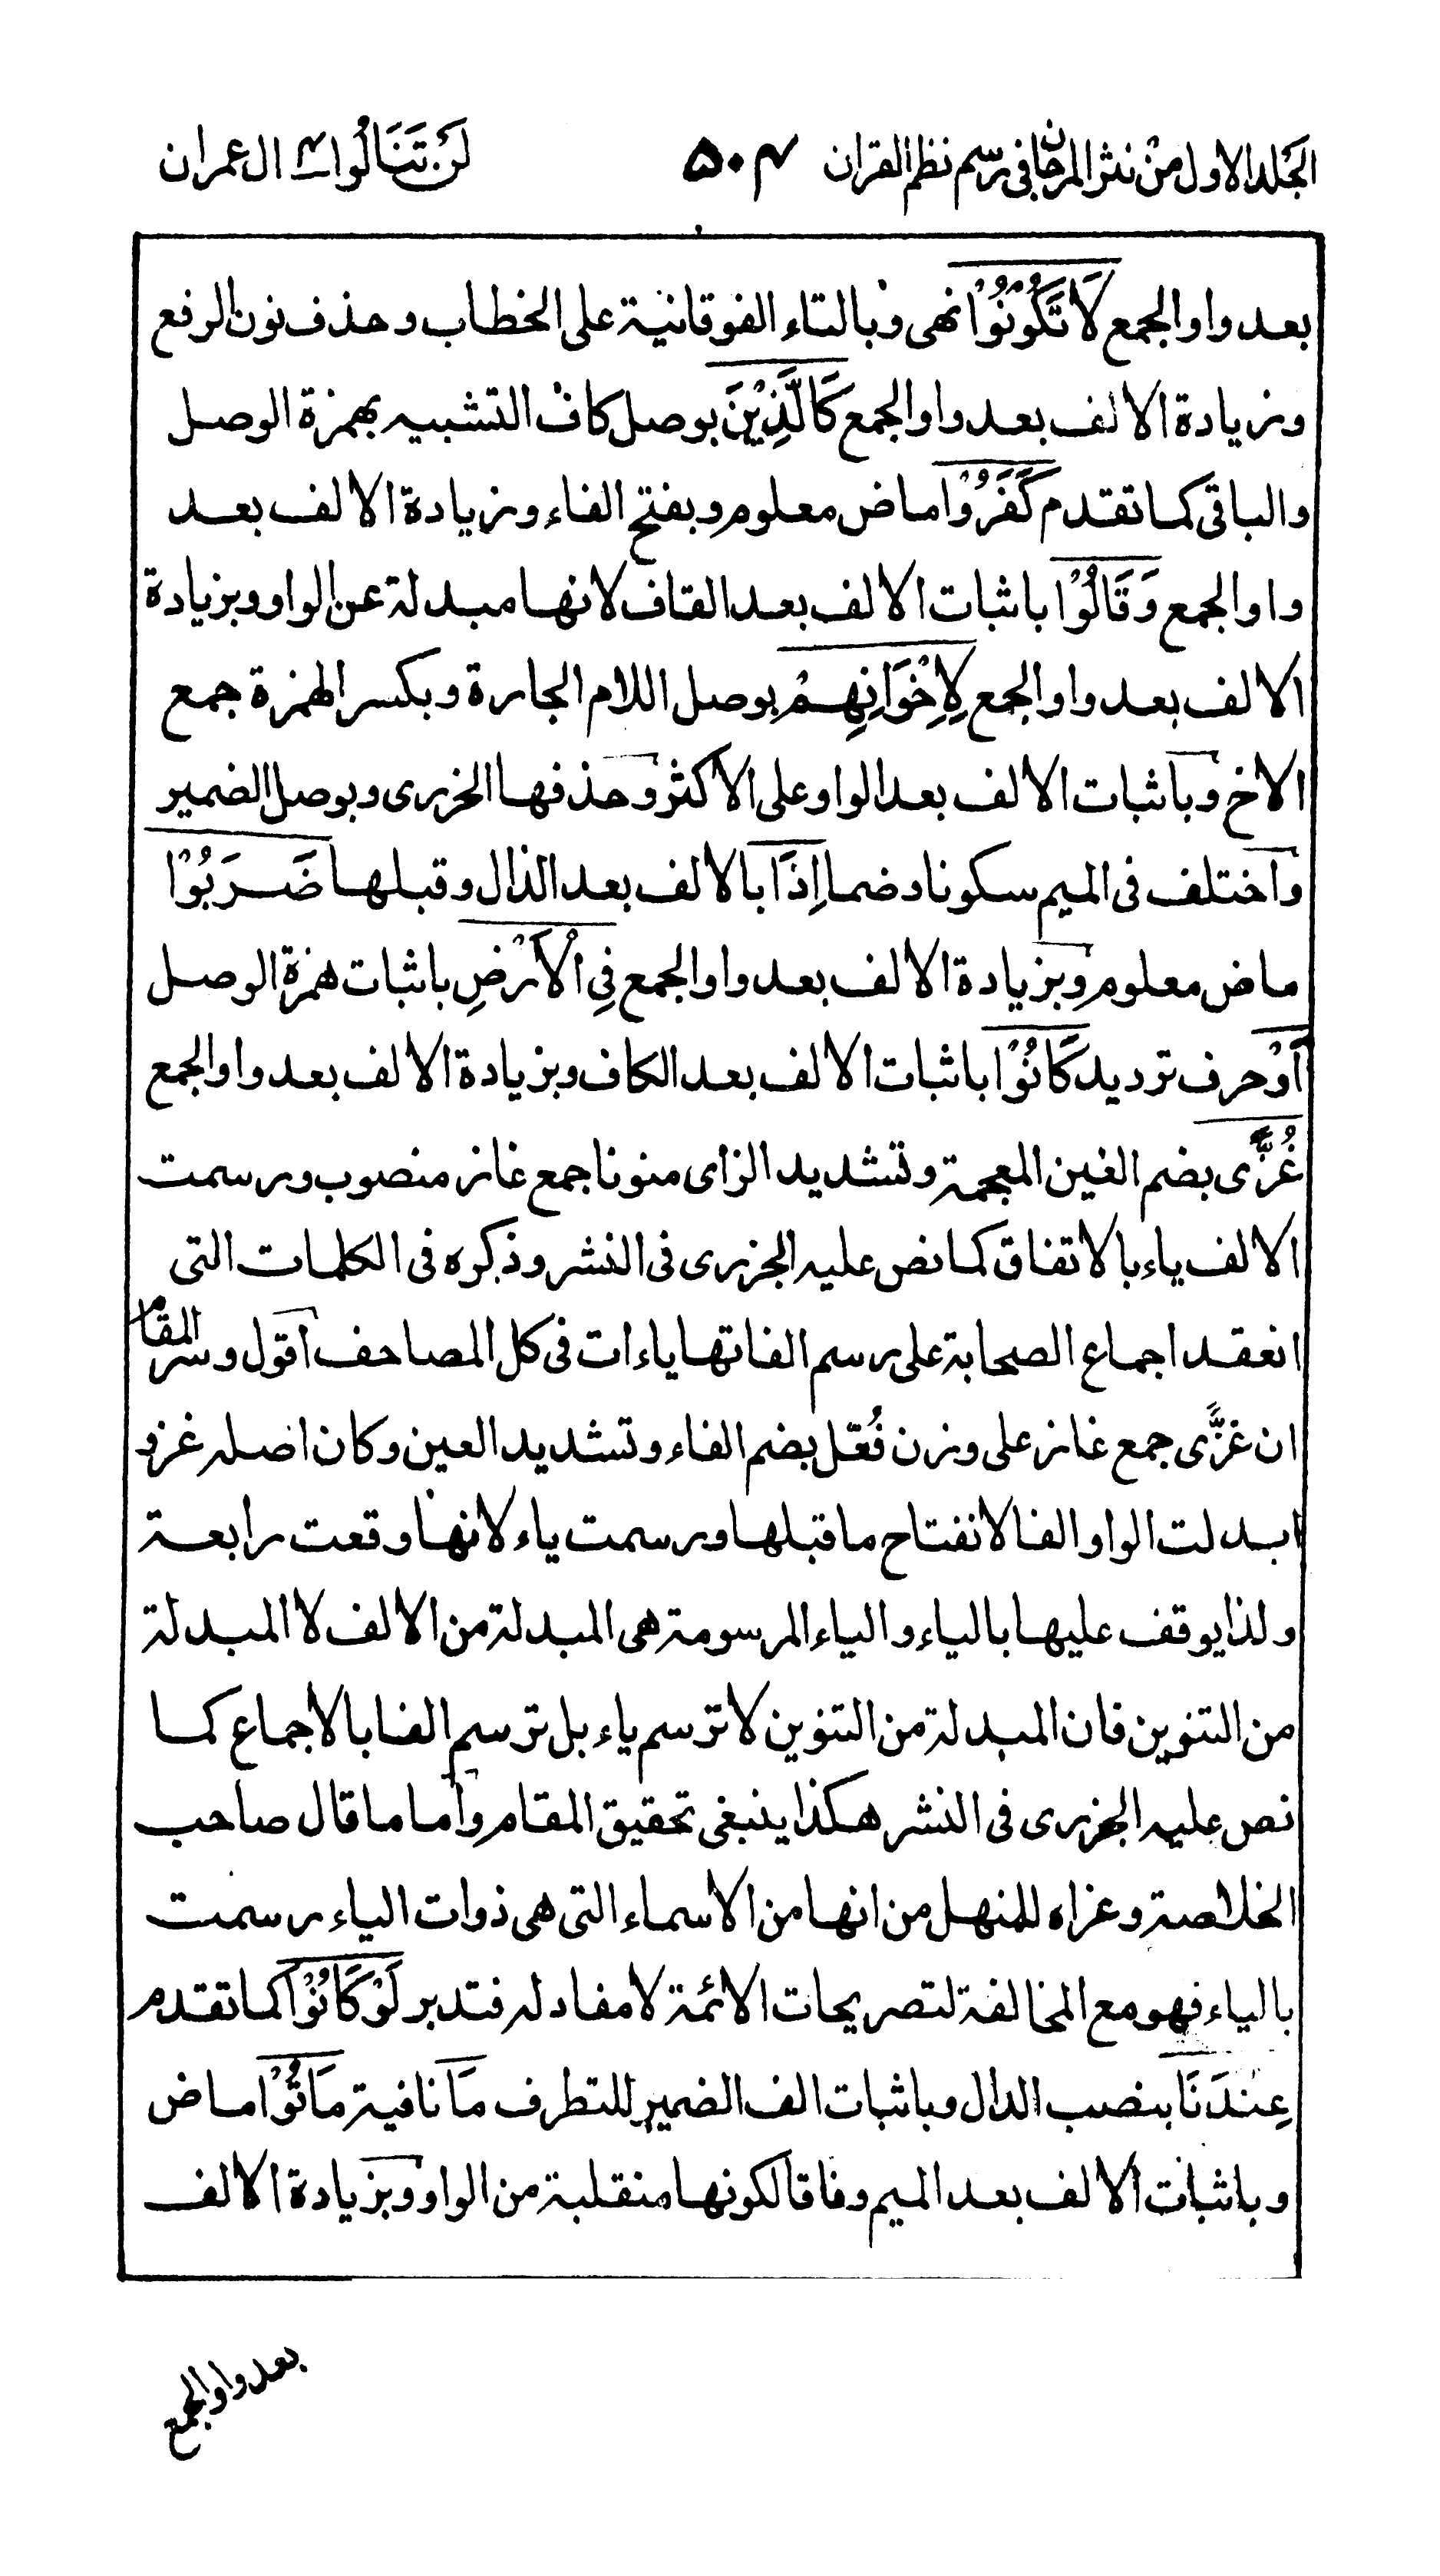 الجلد الاول من نثر المرجان فى رسم نظم القران ۵۰۴ لن تنالوا۴ ال عمران
بعد واو الجمع لَا تَكُوْنُوْا نهى وبالتاء الفوقانية على الخطاب وحذف نون الرفع
وزيادة الالف بعد واو الجمع كَالَّذِيْنَ بوصل كاف التشبيه بهمزة الوصل
والباقى كما تقدم كَفَرُوْا ماض معلوم وبفتح الفاء وزيادة الالف بعد
واو الجمع وَقَالُوْا باثبات الالف بعد القاف لانها مبدلة عن الواو وبزيادة
الالف بعد واو الجمع لِاِخْوَانِهِمْ بوصل اللام الجارة وبكسر الهمزة جمع
الاخ وباثبات الالف بعد الواو على الاكثر وحذفها الجزرى وبوصل الضمير
واختلف فى الميم سكونا وضما اِذَا بالالف بعد الذال وقبلها ضَرَبُوْا
ماض معلوم وبزيادة الالف بعد واو الجمع فِى الْاَرْضِ باثبات همزة الوصل
اَوْ حرف ترديد كَانُوْا باثبات الالف بعد الكاف وبزيادة الالف بعد واو الجمع
غُزًّى بضم الغين المعجمة وتشديد الزاى منونا جمع غاز منصوب ورسمت
الالف ياء بالاتفاق كما نص عليه الجزرى فى النشر وذكره فى الكلمات التى
انعقد اجماع الصحابة على رسم الفاتها ياءات فى كل المصاحف اقول وسر المقام
ان غزًّى جمع غاز على وزن فُعّل بضم الفاء وتشديد العين وكان اصله غزو
ابدلت الواو الفا لانفتاح ما قبلها ورسمت ياء لانها وقعت رابعة
ولذا يوقف عليها بالياء والياء المرسومة هى المبدلة من الالف لا المبدلة
من التنوين فان المبدلة من التنوين لا ترسم ياء بل ترسم الفا بالاجماع كما
نص عليه الجزرى فى النشر هكذا ينبغى تحقيق المقام واما ما قال صاحب
الخلاصة وعزاه للمنهل من انها من الاسماء التى هى ذوات الياء رسمت
بالياء فهو مع المخالفة لتصريحات الائمة لا مفاد له فتدبر لَوْ كَانُوْا كما تقدم
عِنْدَنَا بنصب الدال وباثبات الف الضمير للتطرف مَا نافية مَاتُوْا ماض
وباثبات الالف بعد الميم وفاقا لكونها منقلبة من الواو وبزيادة الالف
بعد واو الجمع